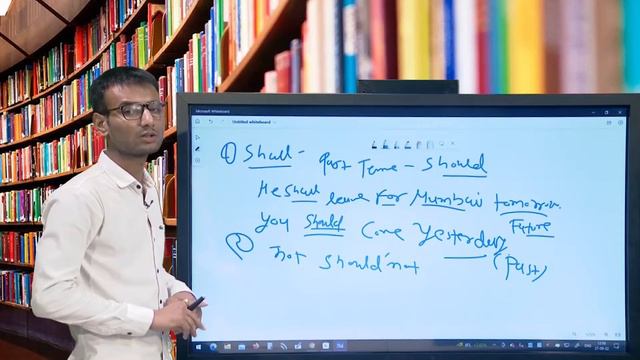 Microsoft Whiteboard
Untitled whiteboard
① Shall - past Tense - Should
He Shall leave For Mumbai tomorrow.
You Should Come Yesterday Future
② not should'not (Past)